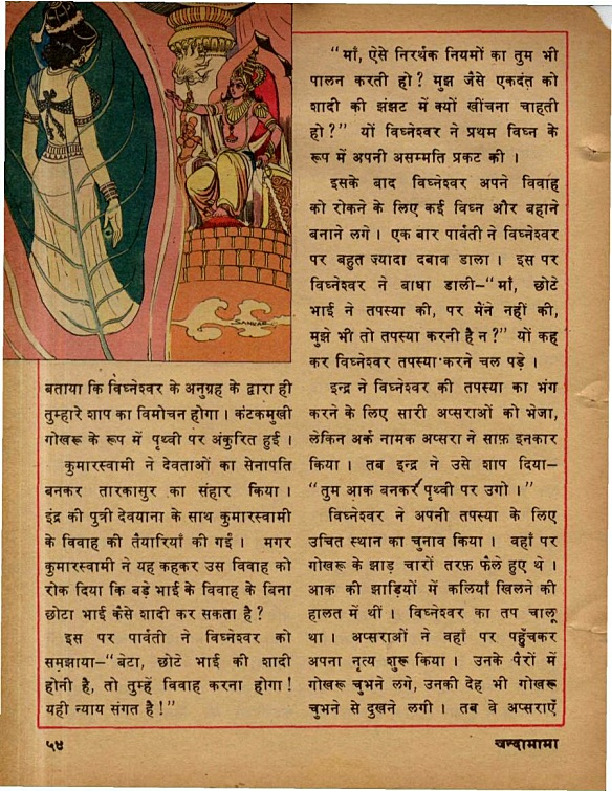 SANKAR
बताया कि विघ्नेश्वर के अनुग्रह के द्वारा ही
तुम्हारे शाप का विमोचन होगा। कंटकमुखी
गोखरू के रूप में पृथ्वी पर अंकुरित हुई।
कुमारस्वामी ने देवताओं का सेनापति
बनकर तारकासुर का संहार किया।
इंद्र की पुत्री देवयाना के साथ कुमारस्वामी
के विवाह की तैयारियाँ की गईं। मगर
कुमारस्वामी ने यह कहकर उस विवाह को
रोक दिया कि बड़े भाई के विवाह के बिना
छोटा भाई कैसे शादी कर सकता है?
इस पर पार्वती ने विघ्नेश्वर को
समझाया–“बेटा, छोटे भाई की शादी
होनी है, तो तुम्हें विवाह करना होगा!
यही न्याय संगत है!”
“माँ, ऐसे निरर्थक नियमों का तुम भी
पालन करती हो? मुझ जैसे एकदंत को
शादी की झंझट में क्यों खींचना चाहती
हो?” यों विघ्नेश्वर ने प्रथम विघ्न के
रूप में अपनी असम्मति प्रकट की।
इसके बाद विघ्नेश्वर अपने विवाह
को रोकने के लिए कई विघ्न और बहाने
बनाने लगे। एक बार पार्वती ने विघ्नेश्वर
पर बहुत ज़्यादा दबाव डाला। इस पर
विघ्नेश्वर ने बाधा डाली–“माँ, छोटे
भाई ने तपस्या की, पर मैंने नहीं की,
मुझे भी तो तपस्या करनी है न?” यों कह
कर विघ्नेश्वर तपस्या करने चल पड़े।
इन्द्र ने विघ्नेश्वर की तपस्या का भंग
करने के लिए सारी अप्सराओं को भेजा,
लेकिन अर्क नामक अप्सरा ने साफ़ इनकार
किया। तब इन्द्र ने उसे शाप दिया–
“तुम आक बनकर पृथ्वी पर उगो।”
विघ्नेश्वर ने अपनी तपस्या के लिए
उचित स्थान का चुनाव किया। वहाँ पर
गोखरू के झाड़ चारों तरफ़ फैले हुए थे।
आक की झाड़ियों में कलियाँ खिलने की
हालत में थीं। विघ्नेश्वर का तप चालू
था। अप्सराओं ने वहाँ पर पहुँचकर
अपना नृत्य शुरू किया। उनके पैरों में
गोखरू चुभने लगे, उनकी देह भी गोखरू
चुभने से दुखने लगी। तब वे अप्सराएँ
५४
चन्दामामा